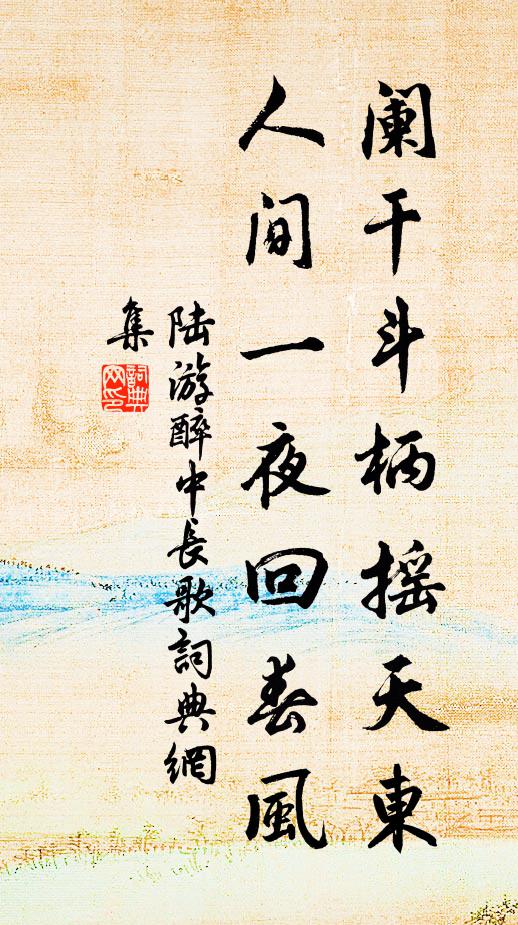 阑干斗柄摇天東
人间一夜回春風
陆游醉中长歌詞典網
集
詞典网印